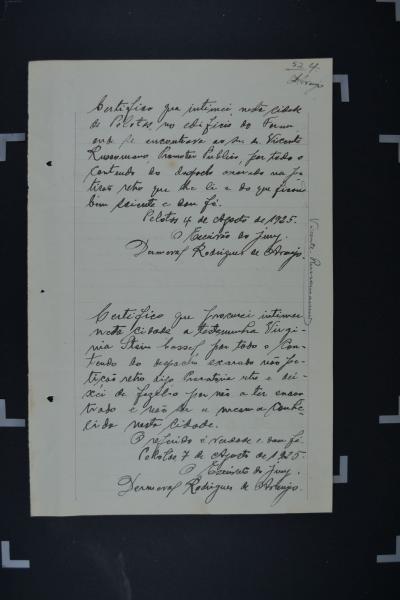 52 4
Araujo
Certifico que intimei, nesta cidade
de Pelotas, no edificio do Forum
onde se encontrava ao sr. dr. Vicente
Russomano, Promotor Publico, por todo o
conteudo do despacho exarado na pe-
tição retro que lhe li e do que ficou
bem sciente e dou fé.
Pelotas 4 de Agosto de 1925.
O Escrivão do Jury.
Dermeval Rodrigues de Araujo.
Vicente Russomano
Certifico que procurei intimar
nesta cidade a testemunha Virgi-
nia Stein Cassel por todo o con-
teudo do despacho exarado não pe-
tição retro digo Precatoria retro e dei-
xei de fazel-o por não a ter encon-
trado e não ser a mesma conhe-
cida nesta cidade.
O referido é verdade e dou fé.
Pelotas 7 de Agosto de 1925.
O Escrivão do Jury.
Dermeval Rodrigues de Araujo.